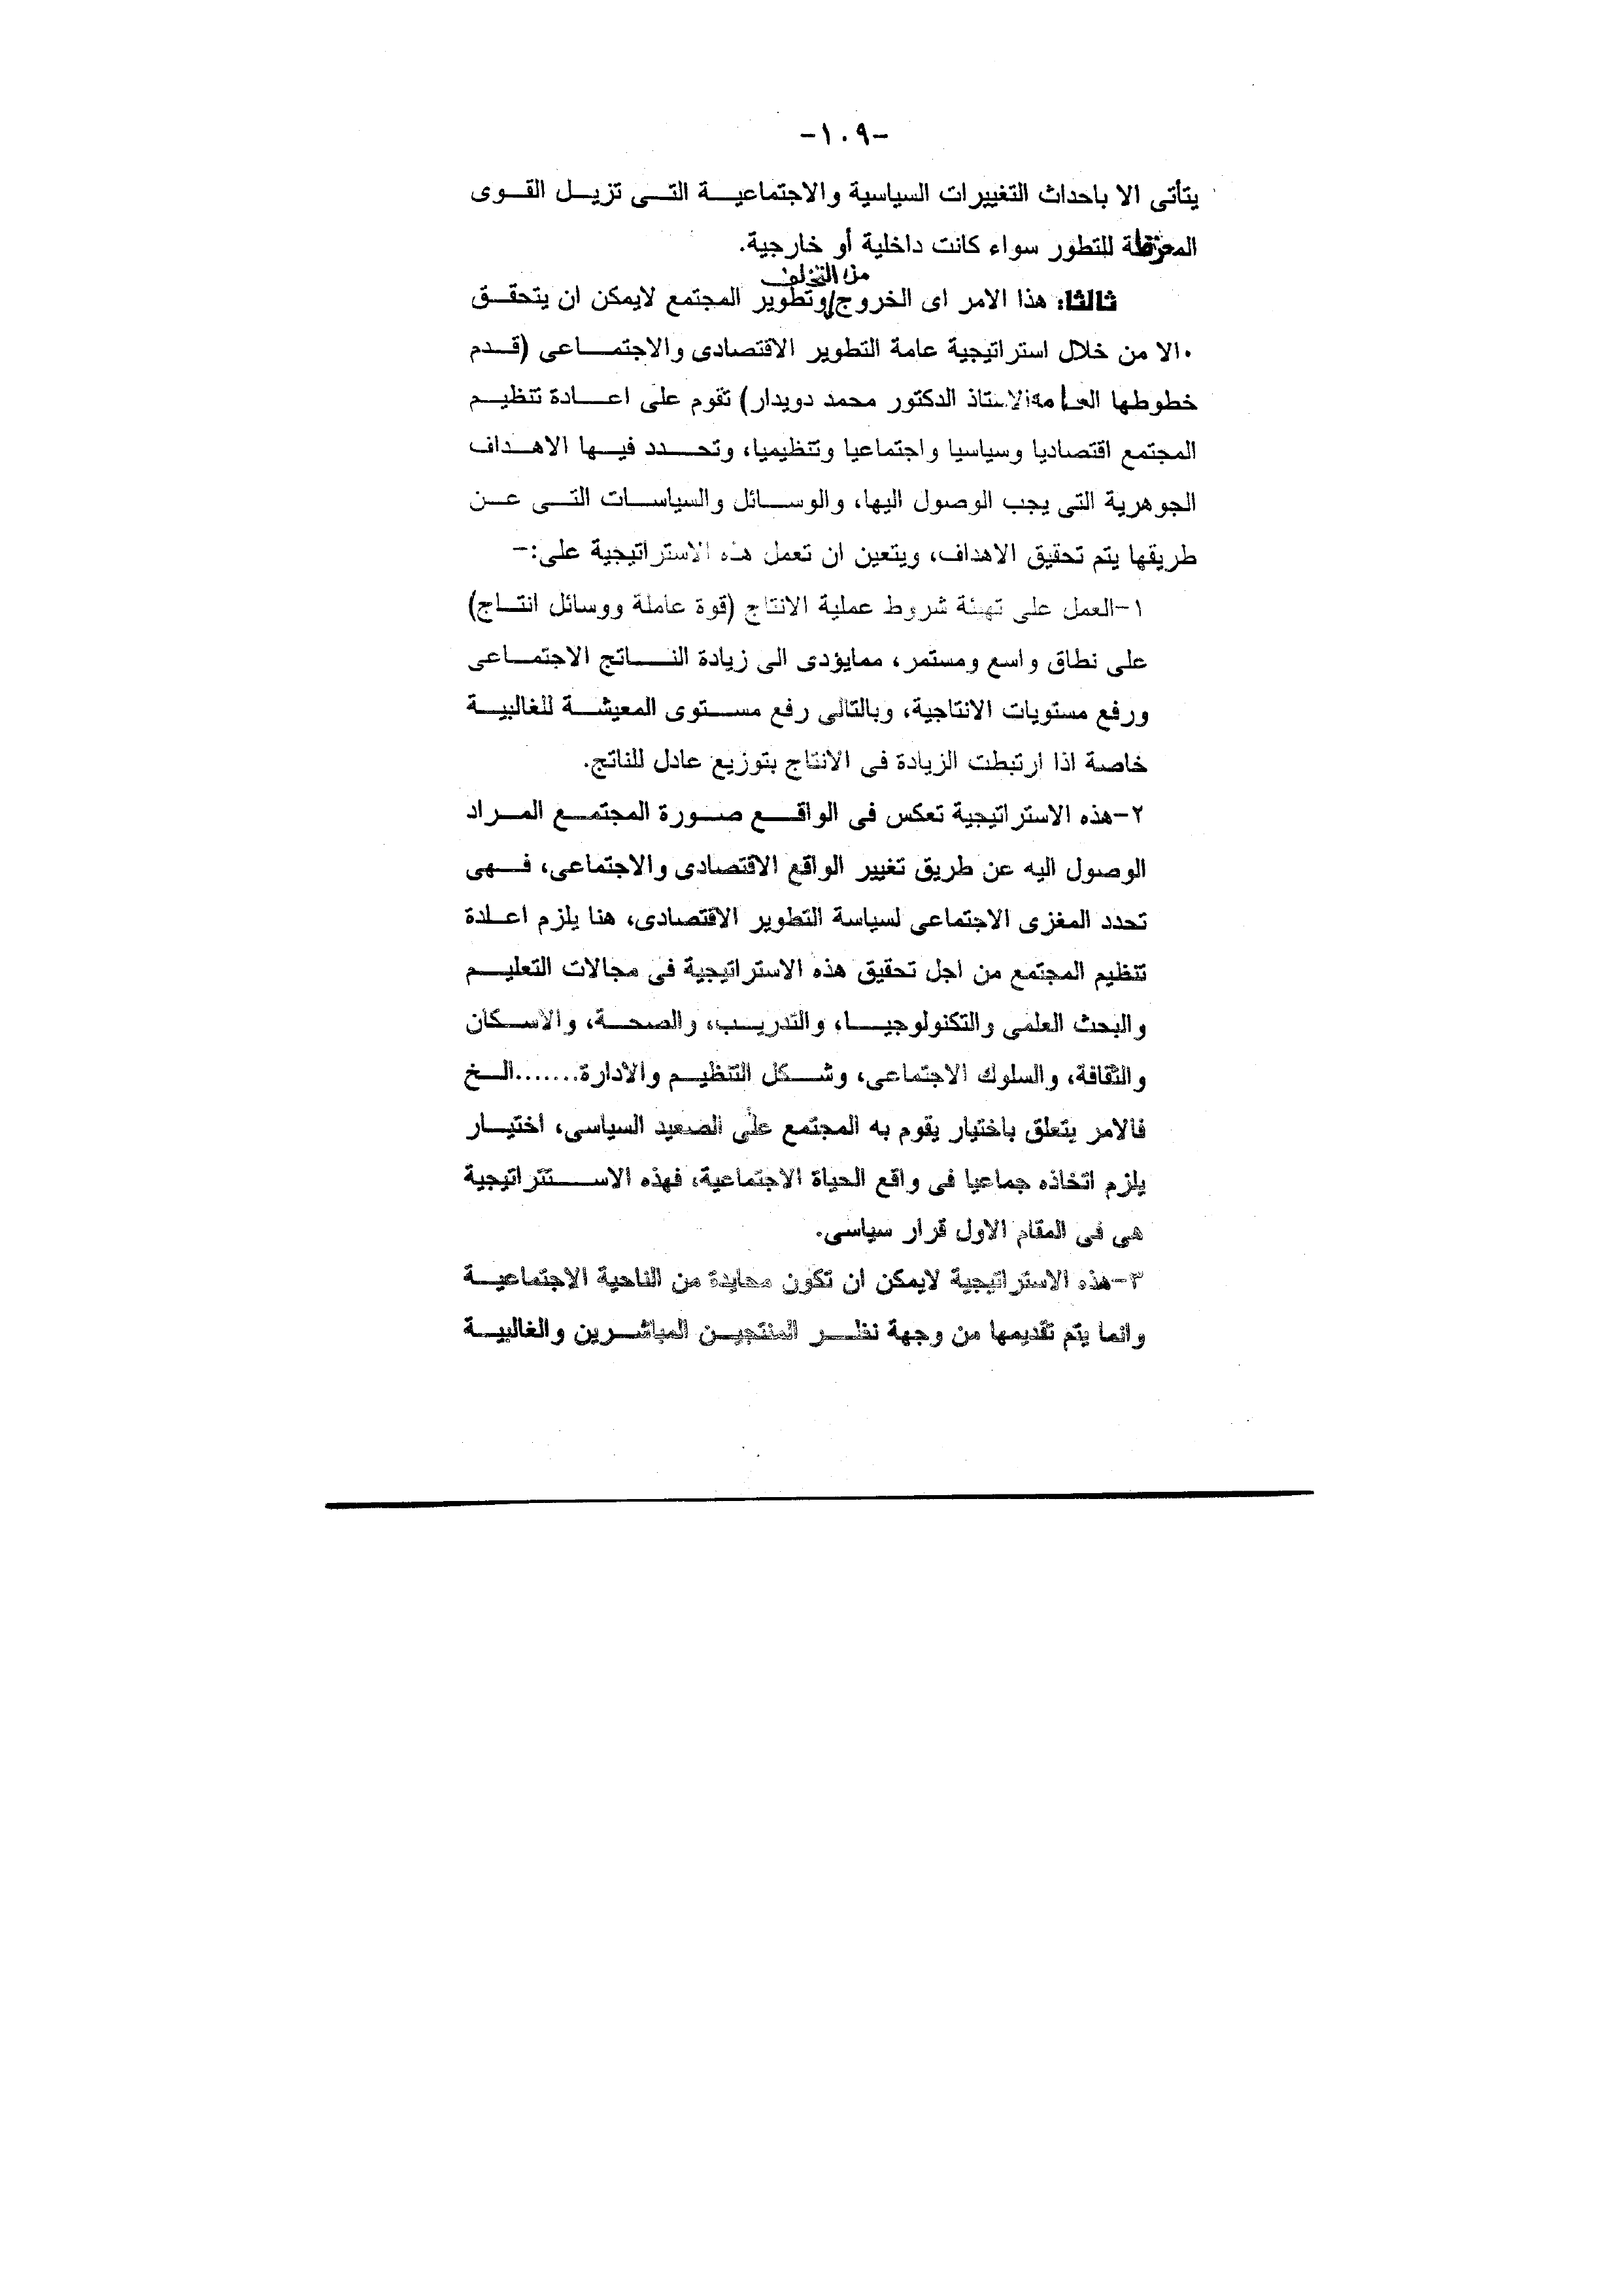 -١٠٩-
يتأتى الا باحداث التغييرات السياسية والاجتماعية التى تزيل القوى
للتطور سواء كانت داخلية أو خارجية.
من التخلف
ثالثا: هذا الامر اى الخروج/وتطوير المجتمع لايمكن ان يتحقق
الا من خلال استراتيجية عامة التطوير الاقتصادى والاجتماعى (قدم
خطوطها العامة الاستاذ الدكتور محمد دويدار) تقوم على اعادة تنظيم
المجتمع اقتصاديا وسياسيا واجتماعيا وتنظيميا، وتحدد فيها الاهداف
الجوهرية التى يجب الوصول اليها، والوسائل والسياسات التى عن
طريقها يتم تحقيق الاهداف، ويتعين ان تعمل هذه الاستراتيجية على:-
١-العمل على تهيئة شروط عملية الانتاج (قوة عاملة ووسائل انتاج)
على نطاق واسع ومستمر، ممايؤدى الى زيادة الناتج الاجتماعى
ورفع مستويات الانتاجية، وبالتالى رفع مستوى المعيشة للغالبية
خاصة اذا ارتبطت الزيادة فى الانتاج بتوزيع عادل للناتج.
٢-هذه الاستراتيجية تعكس فى الواقع صورة المجتمع المراد
الوصول اليه عن طريق تغيير الواقع الاقتصادى والاجتماعى، فهى
تحدد المغزى الاجتماعى لسياسة التطوير الاقتصادى، هنا يلزم اعادة
تنظيم المجتمع من اجل تحقيق هذه الاستراتيجية فى مجالات التعليم
والبحث العلمى والتكنولوجيا، والتدريب، والصحة، والاسكان
والثقافة، والسلوك الاجتماعى، وشكل التنظيم والادارة.......الخ
فالامر يتعلق باختيار يقوم به المجتمع على الصعيد السياسى، اختيار
يلزم اتخاذه جماعيا فى واقع الحياة الاجتماعية، فهذه الاستتراتيجية
هى فى المقام الاول قرار سياسى.
٣-هذه الاستراتيجية لايمكن ان تكون محايدة من الناحية الاجتماعية
وانما يتم تقديمها من وجهة نظر المنتجين المباشرين والغالبية